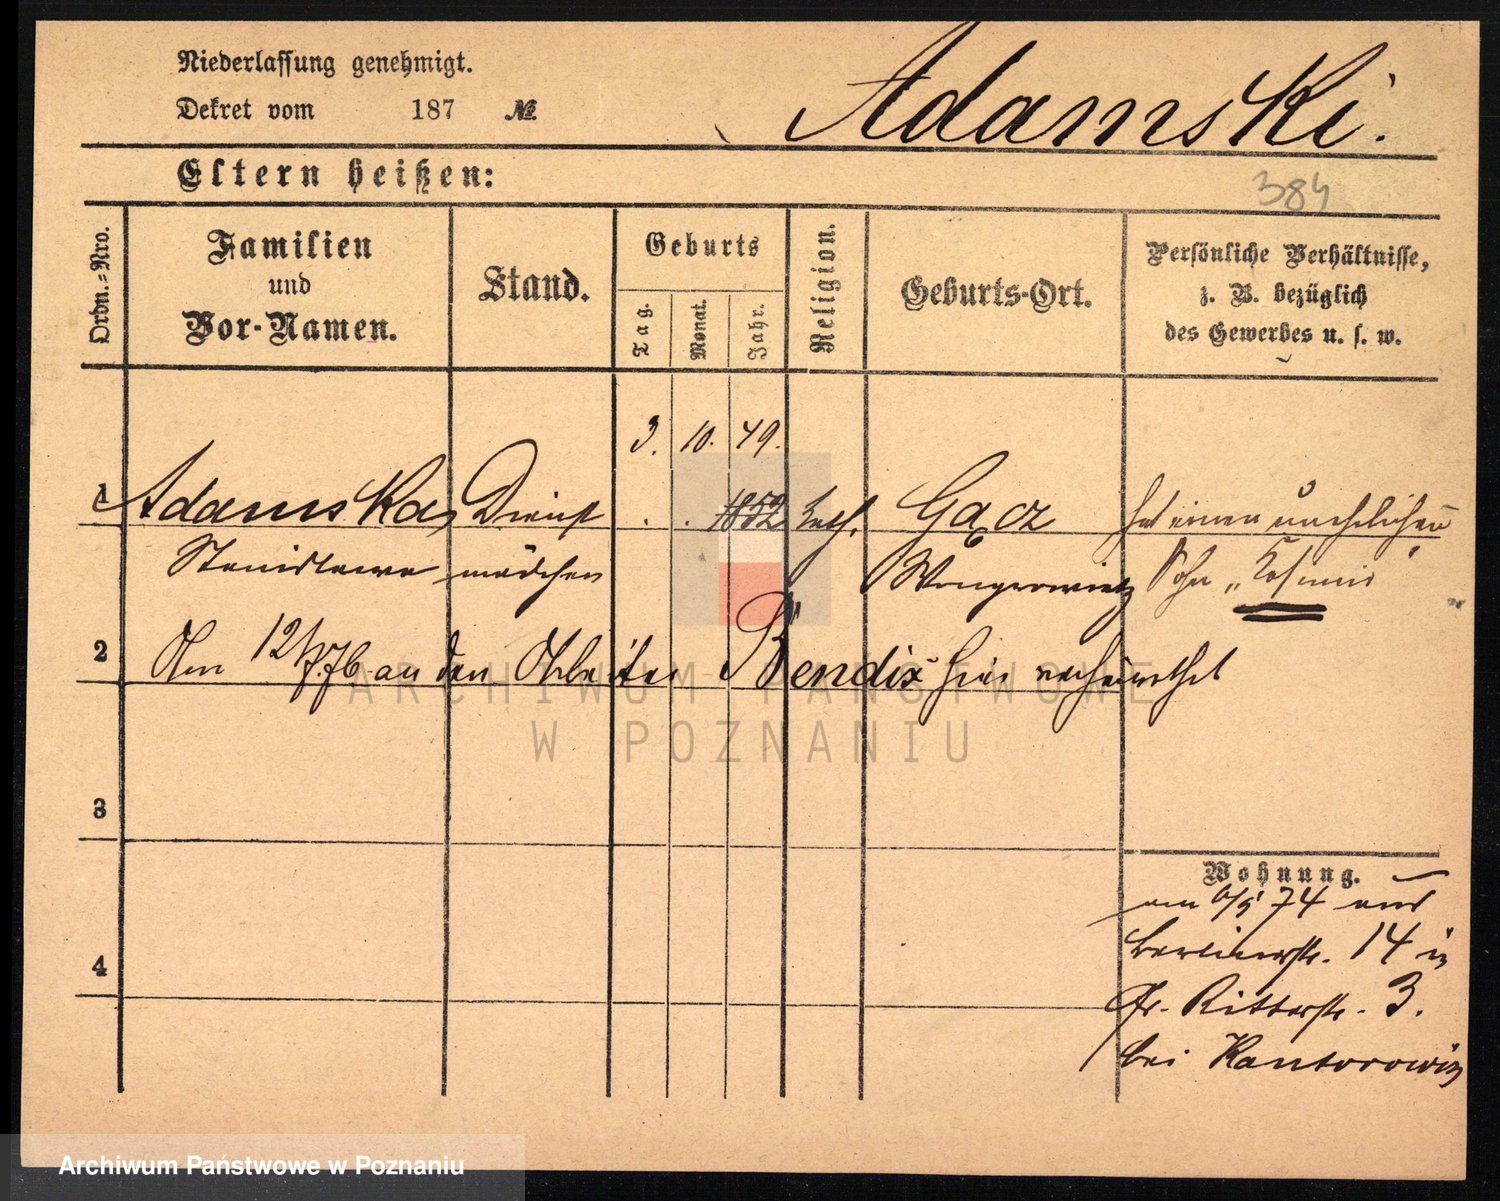 Niederlassung genehmigt.
Dekret vom 187 №
Adamski.
Eltern heißen:
384
Ordn.-Nro.
Familien
und
Vor-Namen.
Stand.
Geburts
Tag.
Monat.
Jahr.
Religion.
Geburts-Ort.
Persönliche Verhältnisse,
z. B. bezüglich
des Gewerbes u. s. w.
3. 10. 49.
1 Adamska, Dienst . . 1852 kath. Gącz hat einen unehelichen
Stanislawa mädchen Wongrowietz Sohn „Kosmus"
2 Am 12/7.76 an den Arbeiter Bendix hier verheirathet
3
Wohnung.
am 6/5 74 aus
Berlinerstr. 14 in
Gr. Ritterstr. 3.
4
bei Kantorowicz
ARCHIWUM PAŃSTWOWE
W POZNANIU
Archiwum Państwowe w Poznaniu